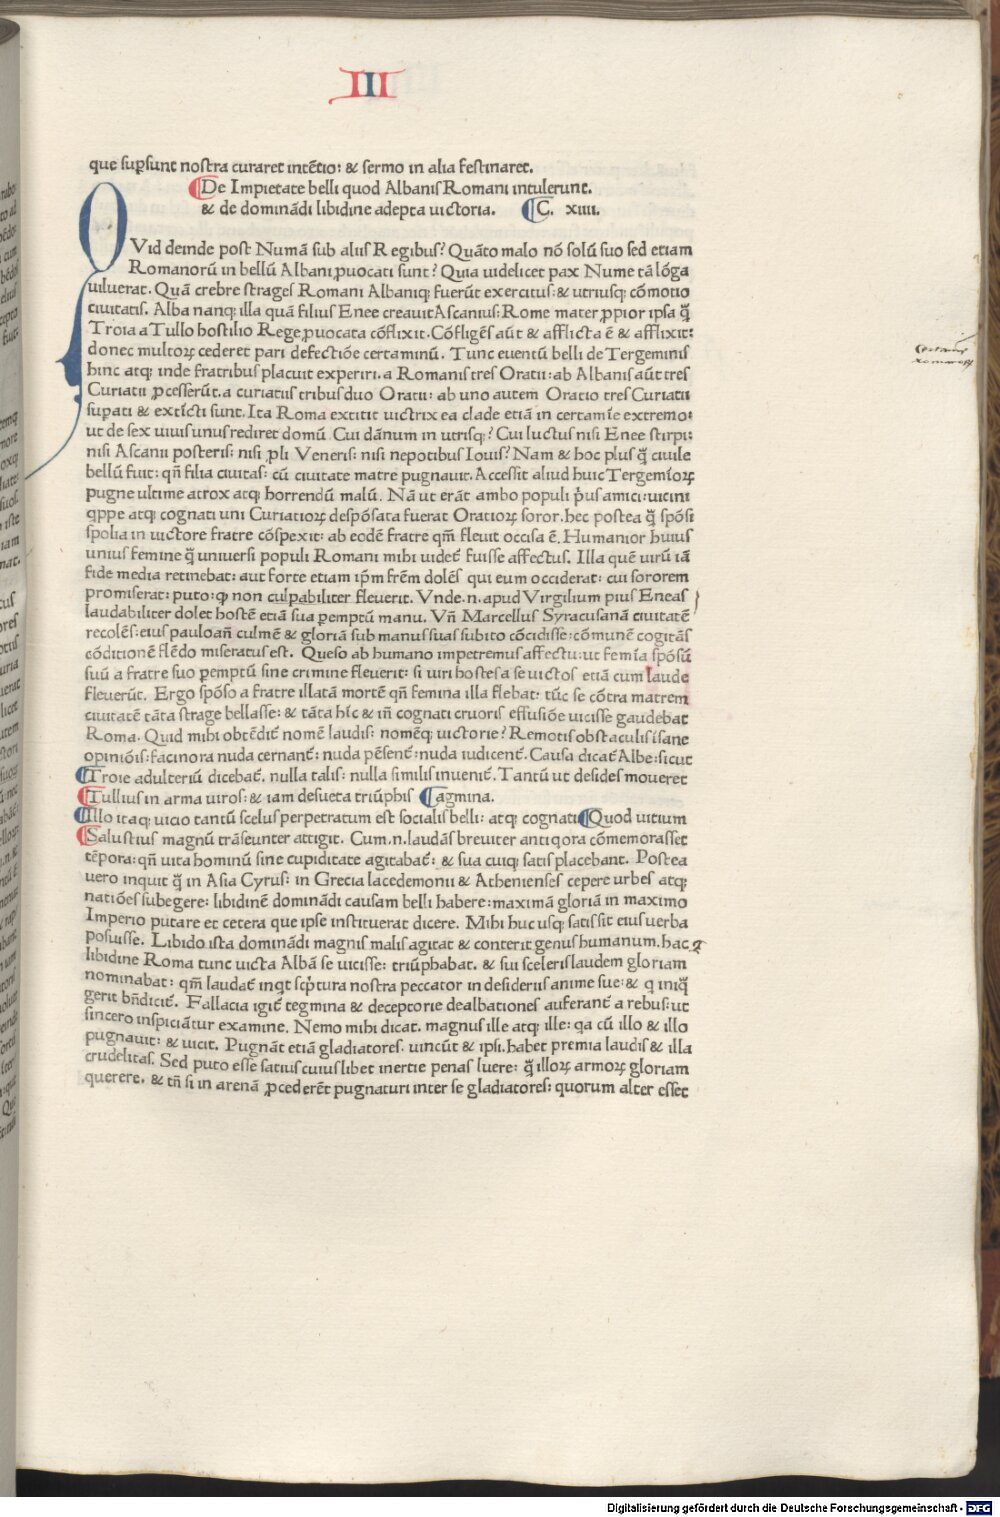 III
que supsunt nostra curaret intẽtio: & sermo in alia festinaret.
De Impietate belli quod Albanis Romani intulerunt.
& de dominãdi libidine adepta uictoria. C. xiiii.
QVid deinde post Numã sub aliis Regibus? Quãto malo nõ solũ suo sed etiam
Romanorũ in bellũ Albani ꝓuocati sunt? Quia uidelicet pax Nume tã lõga
uiluerat. Quã crebre strages Romani Albaniqꝫ fuerũt exercitus: & utriusqꝫ cõmotio
ciuitatis. Alba nanqꝫ illa quã filius Enee creauit Ascanius: Rome mater ꝓpior ipsa q̃̃
Troia a Tullo hostilio Rege ꝓuocata cõflixit. Cõfligẽs aũt & afflicta ẽ & afflixit:
donec multoꝝ cederet pari defectiõe certaminũ. Tunc euentũ belli de Tergeminis
hinc atqꝫ inde fratribus placuit experiri. a Romanis tres Oratii: ab Albanis aũt tres
Curiatii ꝓcesserũt. a curiatiis tribus duo Oratii: ab uno autem Oratio tres Curiatii
supati & extĩcti sunt. Ita Roma extitit uictrix ea clade etiã in certamĩe extremo:
ut de sex uiuis unus rediret domũ. Cui dãnum in utrisqꝫ? Cui luctus nisi Enee stirpi:
nisi Ascanii posteris: nisi ꝓli Veneris: nisi nepotibus Iouis? Nam & hoc plus q̃ ciuile
bellũ fuit: qñ filia ciuitas: cũ ciuitate matre pugnauit. Accessit aliud huic Tergemĩoꝝ
pugne ultime atrox atqꝫ horrendũ malũ. Nã ut erãt ambo populi p̃us amici: uicini
qppe atqꝫ cognati uni Curiatioꝝ despõsata fuerat Oratioꝝ soror. hec postea q̃ spõsi
spolia in uictore fratre cõspexit: ab eodẽ fratre qm̃ fleuit occisa ẽ. Humanior huius
unius femine q̃ uniuersi populi Romani mihi uidet̃ fuisse affectus. Illa quẽ uirũ iã
fide media retinebat: aut forte etiam ip̃m frẽm dolẽs qui eum occiderat: cui sororem
promiserat: puto: ꝙ non culpabiliter fleuerit. Vnde .n. apud Virgilium pius Eneas
laudabiliter dolet hostẽ etiã sua pemptũ manu. Vñ Marcellus Syracusanã ciuitatẽ
recolẽs: eius pauloañ culmẽ & gloriã sub manus suas subito cõcidisse: cõmunẽ cogitãs
cõditionẽ flẽdo miseratus est. Queso ab humano impetremus affectu: ut femĩa spõsũ
suũ a fratre suo pemptũ sine crimine fleuerit: si uiri hostes a se uictos etiã cum laude
fleuerũt. Ergo spõso a fratre illatã mortẽ qñ femina illa flebat: tũc se cõtra matrem
ciuitatẽ tãta strage bellasse: & tãta hĩc & iñ cognati cruoris effusiõe uicisse gaudebat
Roma. Quid mihi obtẽdit̃ nomẽ laudis: nomẽqꝫ uictorie? Remotis obstaculis isane
opiniõis: facinora nuda cernant̃: nuda pẽsent̃: nuda iudicent̃. Causa dicat̃ Albe: sicut
Troie adulteriũ dicebat̃. nulla talis: nulla similis inuenit̃. Tantũ ut desides moueret
Tullius in arma uiros: & iam desueta triũphis agmina.
Illo itaqꝫ uicio tantũ scelus perpetratum est socialis belli: atqꝫ cognati Quod uitium
Salustius magnũ trãseunter attigit. Cum .n. laudãs breuiter antiqora cõmemorasset
tẽpora: qñ uita hominũ sine cupiditate agitabat̃: & sua cuiqꝫ satis placebant. Postea
uero inquit q̃ in Asia Cyrus: in Grecia lacedemonii & Athenienses cepere urbes atqꝫ
natiões subegere: libidinẽ dominãdi causam belli habere: maximã gloriã in maximo
Imperio putare et cetera que ipse instituerat dicere. Mihi huc usqꝫ satis sit eius uerba
posuisse. Libido ista dominãdi magnis malis agitat & conterit genus humanum. hac
libidine Roma tunc uicta Albã se uicisse: triũphabat. & sui sceleris laudem gloriam
nominabat: qm̃ laudat̃ inqt sc̃ptura nostra peccator in desideriis anime sue: & q iniq̃
gerit bñdicit̃. Fallacia igit̃ tegmina & deceptorie dealbationes auferant̃ a rebus: ut
sincero inspiciãtur examine. Nemo mihi dicat. magnus ille atqꝫ ille: qa cũ illo & illo
pugnauit: & uicit. Pugnãt etiã gladiatores. uincũt & ipsi. habet premia laudis & illa
crudelitas. Sed puto esse satius cuius libet inertie penas luere: q̃ illoꝝ armoꝝ gloriam
querere. & tñ si in arenã ꝓcederẽt pugnaturi inter se gladiatores: quorum alter esset
Digitalisierung gefördert durch die Deutsche Forschungsgemeinschaft - DFG